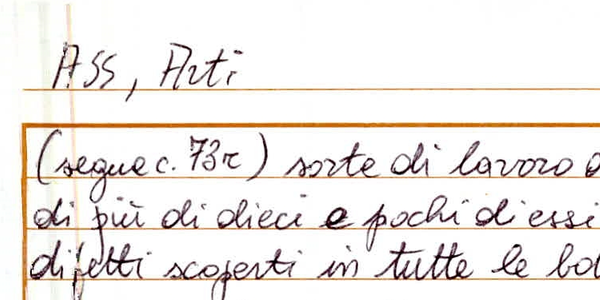 Ass, Arti
(segue c. 73r) sorte di lavoro
di più di dieci e pochi di essi
difetti scoperti in tutte le